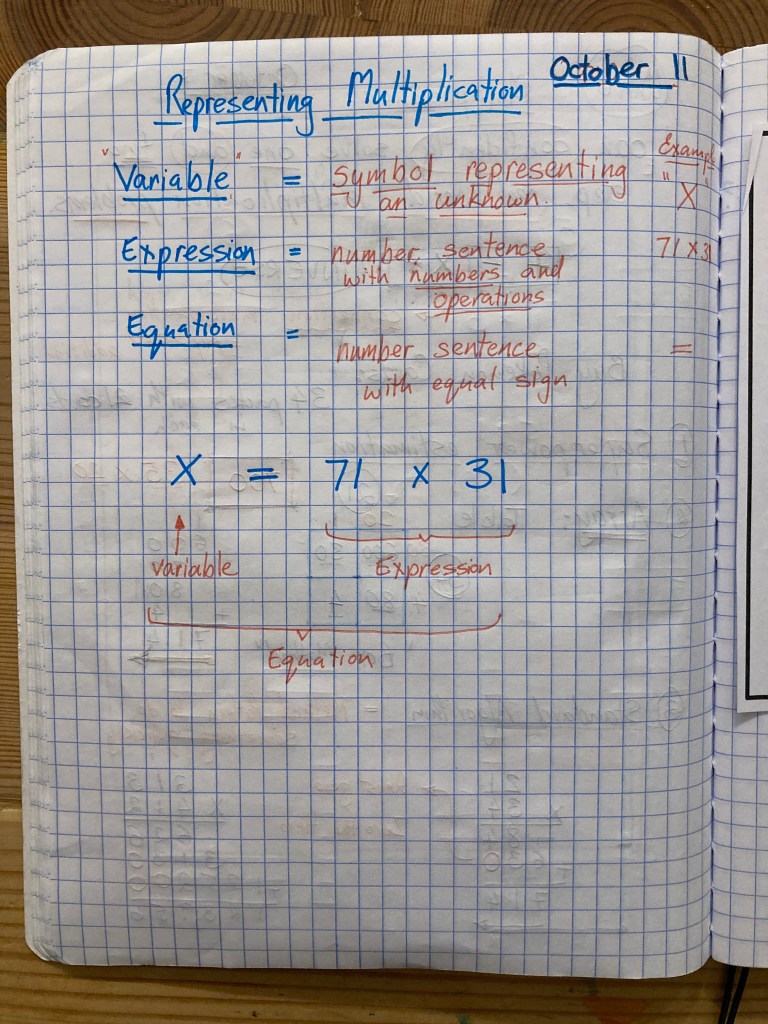 October 11
Representing Multiplication
Example
"Variable" = symbol representing "X"
an unknown.
Expression = number sentence 71 x 31
with numbers and
operations
Equation = number sentence =
with equal sign
X = 71 x 31
variable Expression
Equation